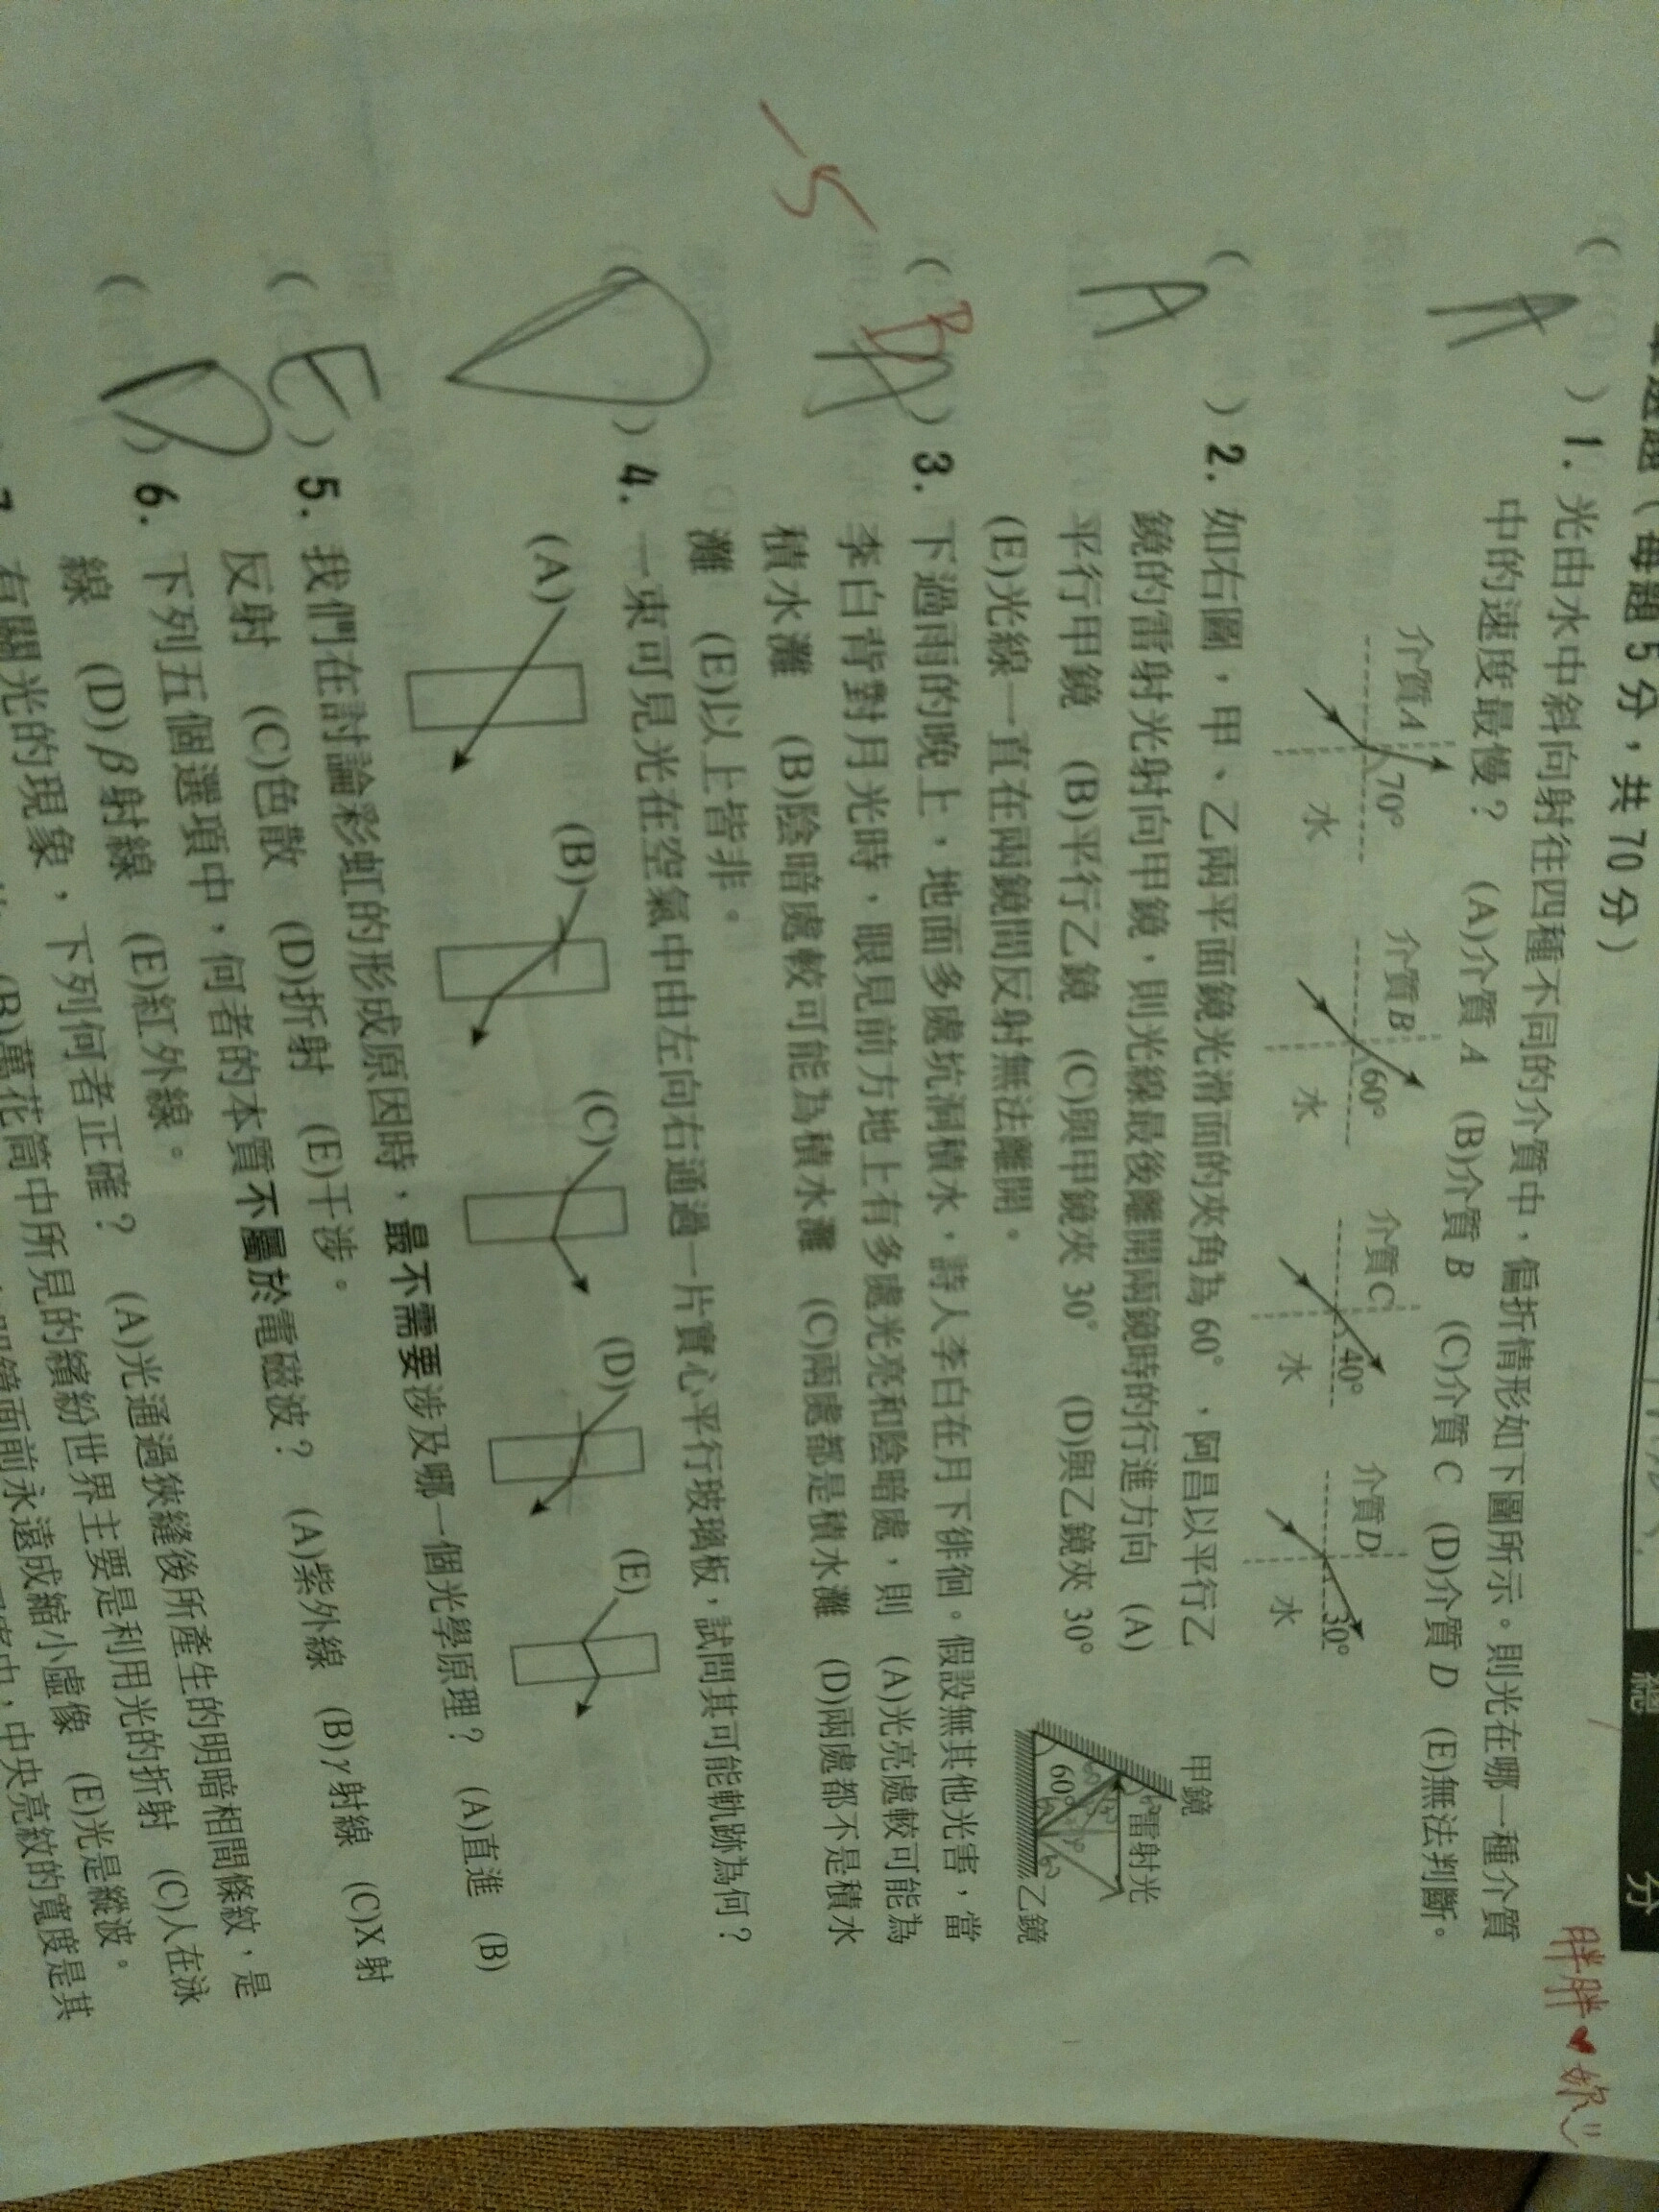 選題(每題 5 分，共 70 分)
總 分
胖胖♥妳
A
( ) 1. 光由水中斜向射往四種不同的介質中，偏折情形如下圖所示。則光在哪一種介質
中的速度最慢？ (A)介質 A (B)介質 B (C)介質 C (D)介質 D (E)無法判斷。
介質A 70° 水
介質B 60° 水
介質C 40° 水
介質D 30° 水
A
( ) 2. 如右圖，甲、乙兩平面鏡光滑面的夾角為 60°，阿昌以平行乙
鏡的雷射光射向甲鏡，則光線最後離開兩鏡時的行進方向 (A)
平行甲鏡 (B)平行乙鏡 (C)與甲鏡夾 30° (D)與乙鏡夾 30°
(E)光線一直在兩鏡間反射無法離開。
甲鏡
雷射光
60°
乙鏡
-5
A B
( ) 3. 下過雨的晚上，地面多處坑洞積水，詩人李白在月下徘徊。假設無其他光害，當
李白背對月光時，眼見前方地上有多處光亮和陰暗處，則 (A)光亮處較可能為
積水灘 (B)陰暗處較可能為積水灘 (C)兩處都是積水灘 (D)兩處都不是積水
灘 (E)以上皆非。
D
( ) 4. 一束可見光在空氣中由左向右通過一片實心平行玻璃板，試問其可能軌跡為何？
(A) (B) (C) (D) (E)
E
( ) 5. 我們在討論彩虹的形成原因時，最不需要涉及哪一個光學原理？ (A)直進 (B)
反射 (C)色散 (D)折射 (E)干涉。
D
( ) 6. 下列五個選項中，何者的本質不屬於電磁波？ (A)紫外線 (B)γ射線 (C)X射
線 (D)β射線 (E)紅外線。
7 有關光的現象，下列何者正確？ (A)光通過狹縫後所產生的明暗相間條紋，是
(B)萬花筒中所見的繽紛世界主要是利用光的折射 (C)人在泳
面前永遠成縮小虛像 (E)光是縱波。
中央亮紋的寬度是其